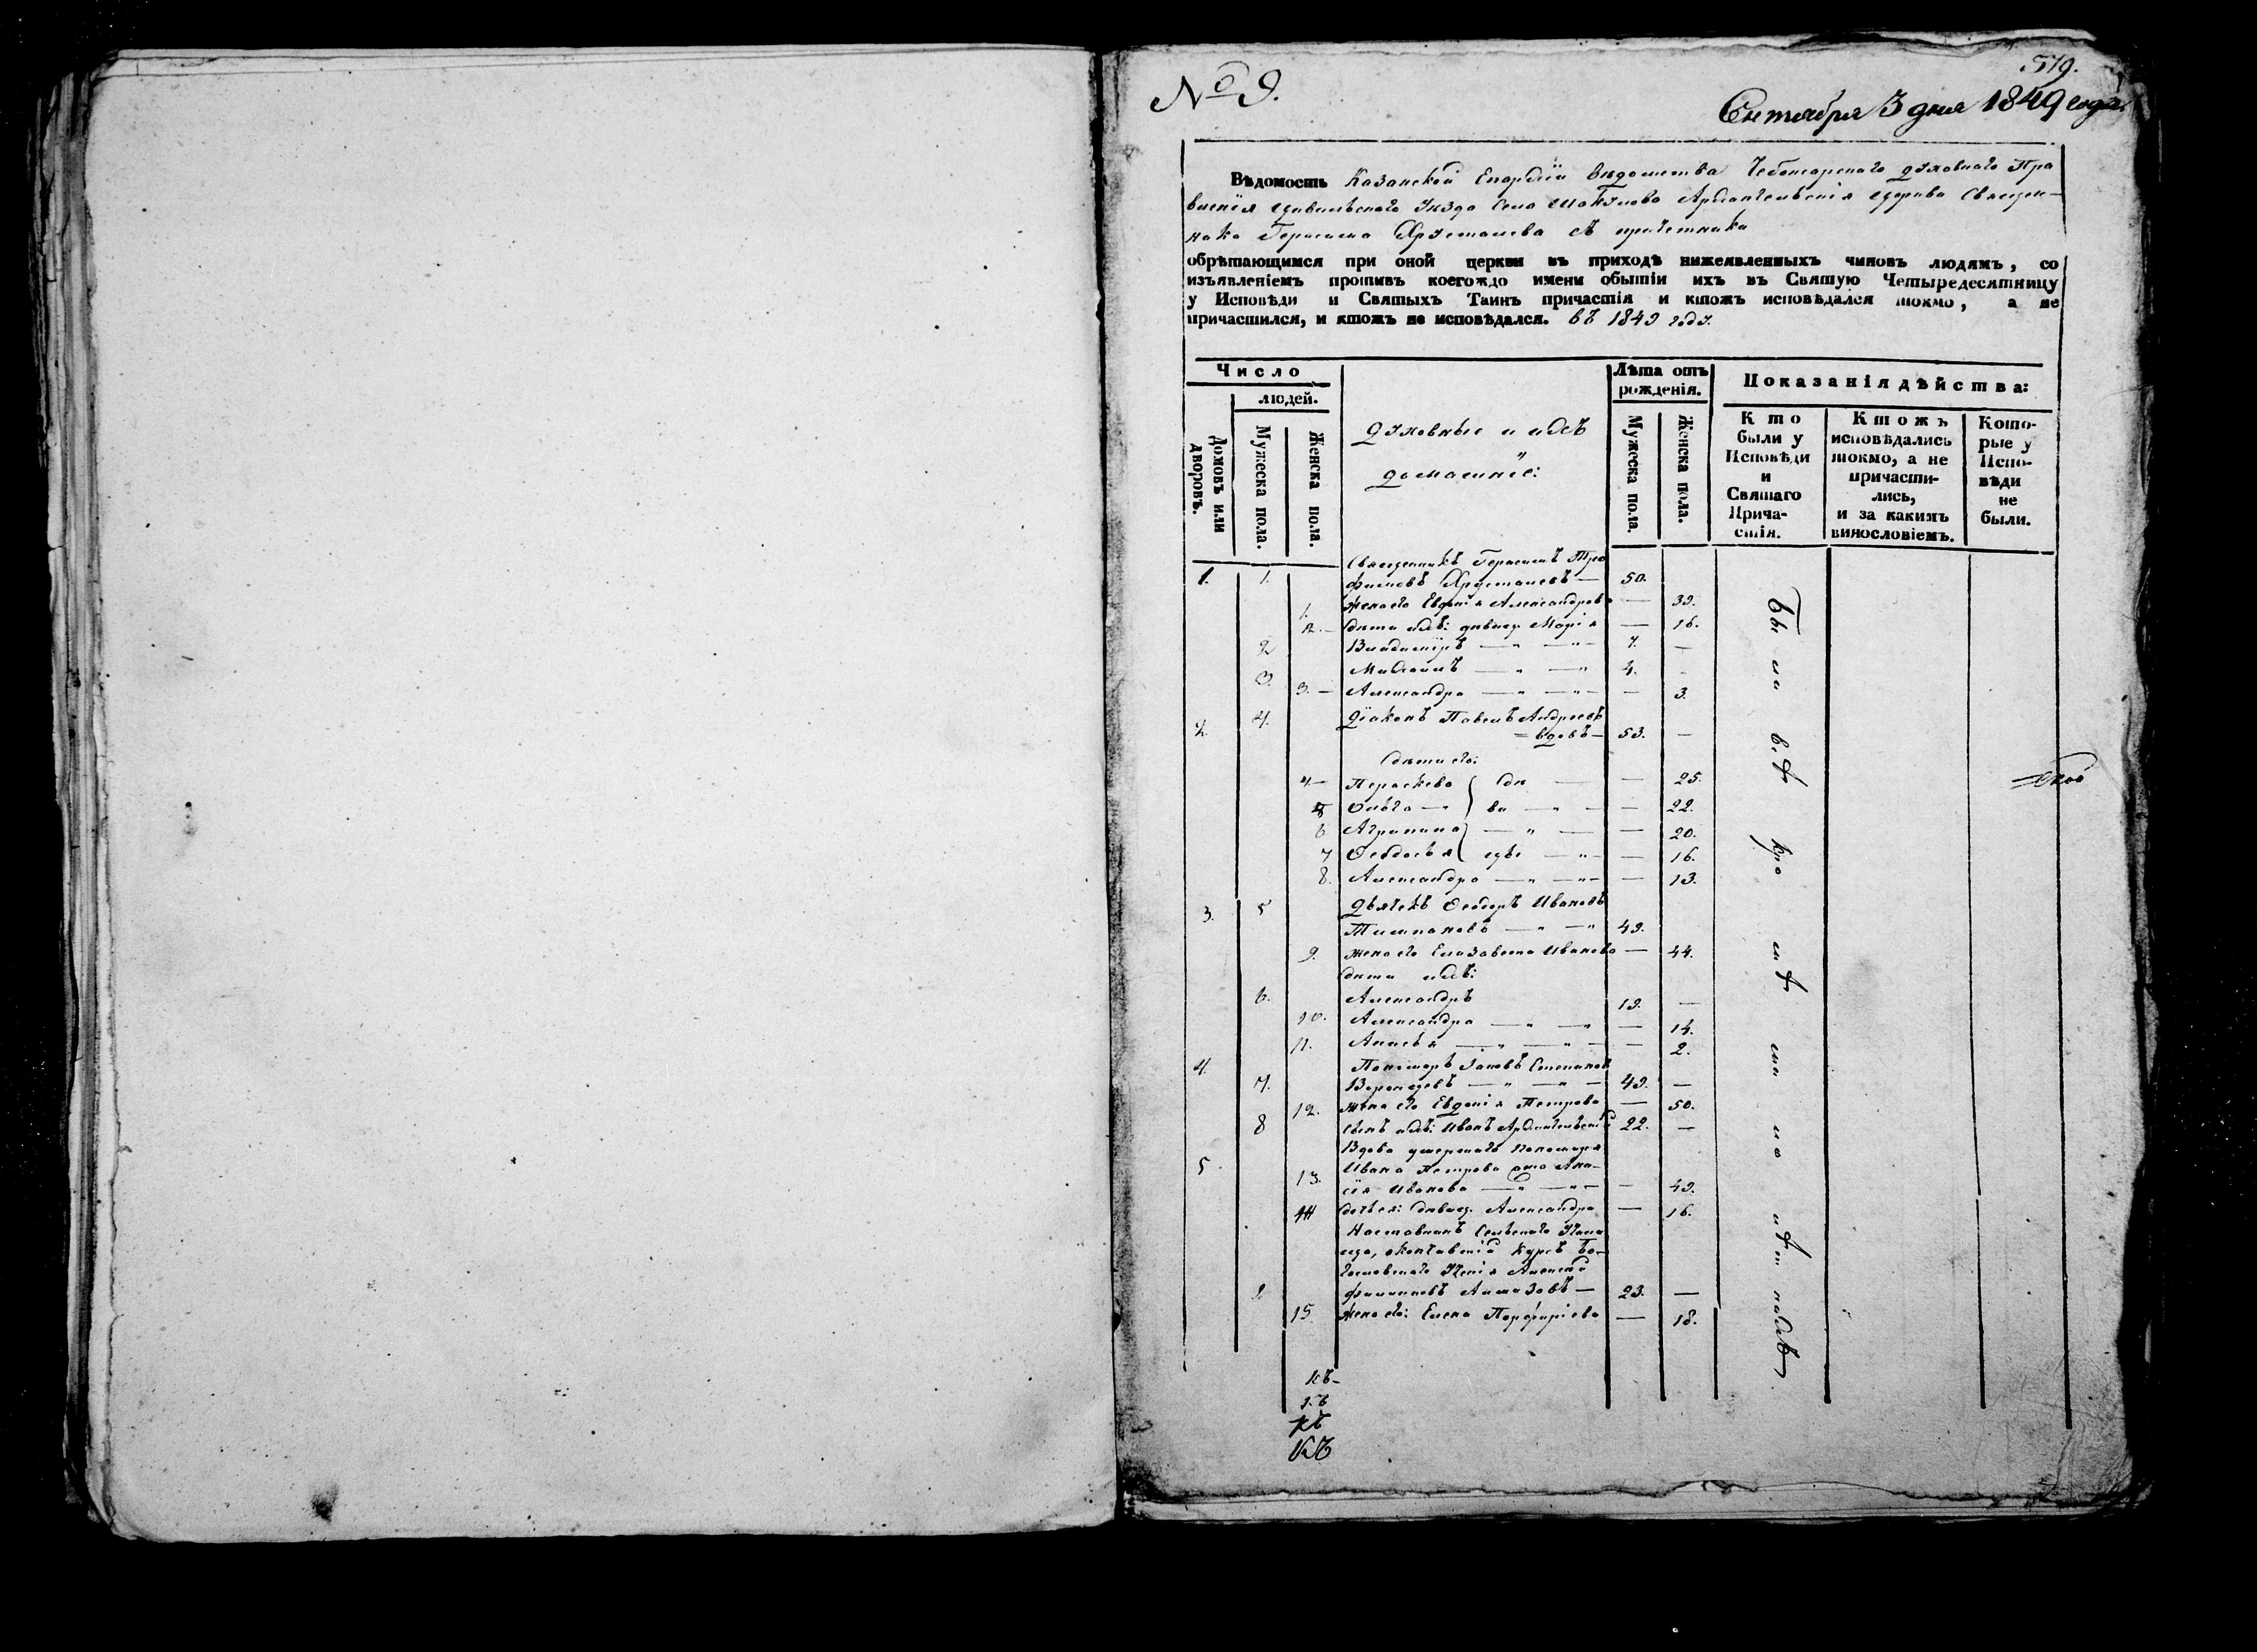 № 9.
519.
Сентября 3 дня 1849 года.
Вѣдомость Казанской Епархіи вѣдомства Чебоксарскаго духовнаго Пра
вленія Цивильскаго уѣзда Села Архангельскія церкви Священ-
ника Герасима Хрусталева съ причетники
обрѣтающимся при оной церкви въ приходѣ нижеявленныхъ чиновъ людямъ, со
изъявленіемъ противъ коегождо имени обытіи ихъ въ Святую Четыредесятницу
у Исповѣди и Святыхъ Таинъ причастія и ктожъ исповѣдался токмо, а не
причастился, и ктожъ не исповѣдался. въ 1849 году.
Число
людей.
Домовъ или дворовъ.
Мужеска пола.
Женска пола.
Духовные и ихъ
домашніе:
Лѣта отъ рожденія.
Мужеска пола.
Женска пола.
Показанія дѣйства:
Кто были у Исповѣди и Святаго Причастія.
Ктожъ исповѣдались токмо, а не причасти-лись, и за какимъ винословіемъ.
Кото-рые у Испо-вѣди не были.
Священникъ Герасимъ Тро
1. 1. фимовъ Хрусталевъ — 50.
1. Жена его Евдокія Александрова — 39.
2. — дѣти ихъ: дѣвица Марія — 16.
2 Владиміръ — " — " 7. —
3. Михаилъ — " — " 4. -
3. — Александра — " — " — 3.
2. 4. Діаконъ Павелъ Андреевъ
= вдовъ — 53. —
Дѣти его:
4 — Параскева дѣ — — 25.
5 Ольга — ви — " — 22.
6 Агрипина — " — 20.
7 Ѳеодосья цы — " — 16.
8. Александра — " — " — 13.
3. 5 Дьячекъ Ѳеодоръ Ивановъ
— " — " 49.
9. жена его Елизавета Иванова — 44.
дѣти ихъ:
6. Александръ 19. —
10. Александра — " — " — 14.
11. Анисья — " — " — 2.
4. Пономарь Іаковъ Степановъ
7. Воронцовъ — " — " — 49. —
12. жена его Евдокія Петрова — 50.
8 сынъ ихъ: Иванъ Архангельскій 22. —
Вдова умершаго пономаря
5 Ивана Петрова
13. Иванова — " — " — 49.
14 дочь ея: дѣвица Александра — 16.
Наставникъ Сельскаго Учили
ща, окончавшій курсъ Бо-
гословскаго Ученія Алексей
9. Филиповъ Алмазовъ — 23. —
15 жена его: Елена Порфиріева — 18.
Бы ли всѣ кро мѣ ма ло лѣт нихъ